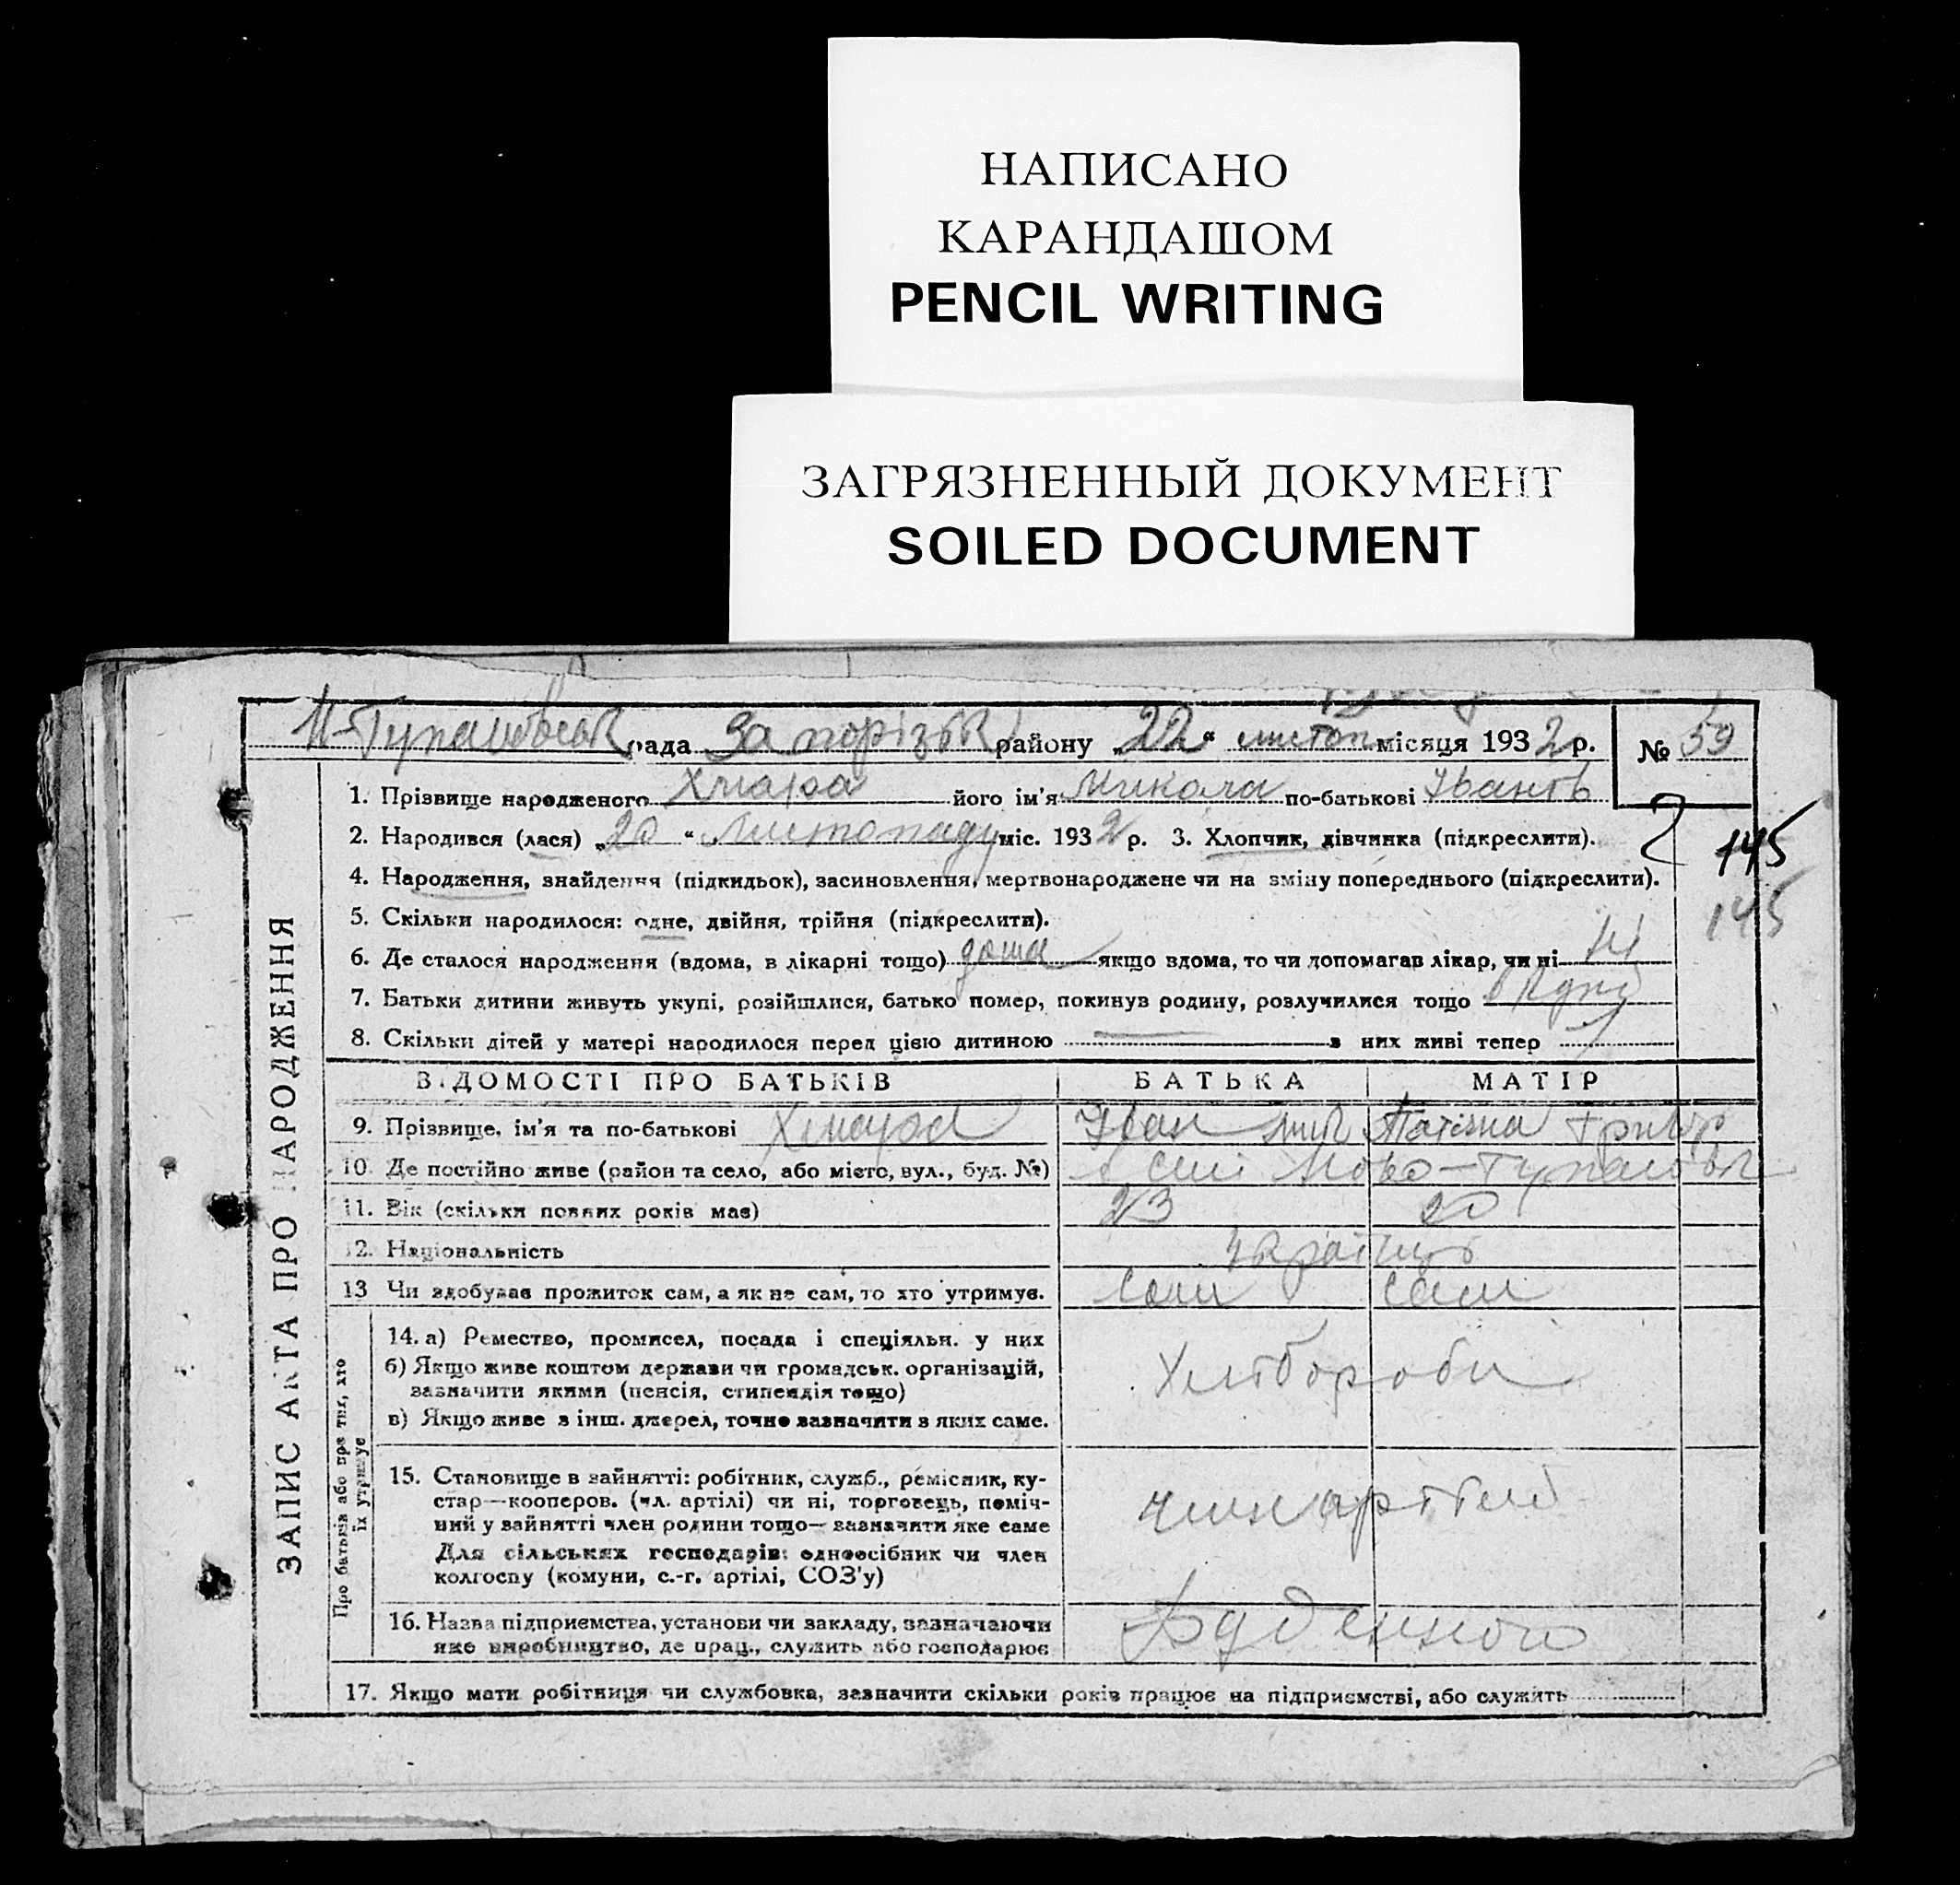 НАПИСАНО
КАРАНДАШОМ
PENCIL WRITING
ЗАГРЯЗНЕННЫЙ ДОКУМЕНТ
SOILED DOCUMENT
рада Запорізьк району „22“ листоп місяця 1932 р. № 59
1. Прізвище народженого Хмара його ім'я Микола по-батькові Іванів
2. Народився (лася) „20“ Листопаду міс. 1932 р. 3. Хлопчик, дівчинка (підкреслити).
145
4. Народження, знайдення (підкидьок), засиновлення, мертвонароджене чи на зміну попереднього (підкреслити).
145
5. Скільки народилося: одне, двійня, трійня (підкреслити).
6. Де сталося народження (вдома, в лікарні тощо) дома якщо вдома, то чи допомагав лікар, чи ні ні
7. Батьки дитини живуть укупі, розійшлися, батько помер, покинув родину, розлучилися тощо вкупі
8. Скільки дітей у матері народилося перед цією дитиною — з них живі тепер
ЗАПИС АКТА ПРО НАРОДЖЕННЯ
ВІДОМОСТІ ПРО БАТЬКІВ БАТЬКА МАТІР
9. Прізвище, ім'я та по-батькові Хмара Іван Григор
10. Де постійно живе (район та село, або місто, вул., буд. №) в селі Ново-
11. Вік (скільки повних років має) 23 20
12. Національність Українці
13 Чи здобував прожиток сам, а як не сам, то хто утримує. сам сам
Про батьків або про тих, хто їх утримує
14. а) Ремество, промисел, посада і спеціяльн. у них
б) Якщо живе коштом держави чи громадськ. організацій,
зазначити якими (пенсія, стипендія тощо)
Хлібороби
в) Якщо живе з інш. джерел, точно зазначити з яких саме.
15. Становище в зайнятті: робітник, служб., ремісник, ку-
стар—кооперов. (чл. артілі) чи ні, торговець, поміч-
ний у зайнятті член родини тощо—зазначити яке саме
член артілі
Для сільських господарів: одноосібник чи член
колгоспу (комуни, с.-г. артілі, СОЗ'у)
16. Назва підприємства, установи чи закладу, зазначаючи
яке виробництво, де прац., служить або господарює
Буденного
17. Якщо мати робітниця чи службовка, зазначити скільки років працює на підприємстві, або служить